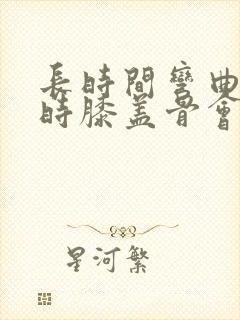 長時間彎曲
時膝蓋骨會
星河繁